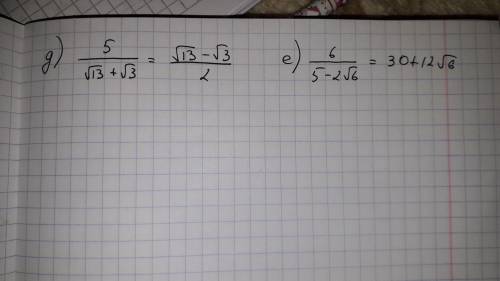 д) 5/(√13 + √3) = (√13 − √3)/2
е) 6/(5 − 2√6) = 30 + 12√6